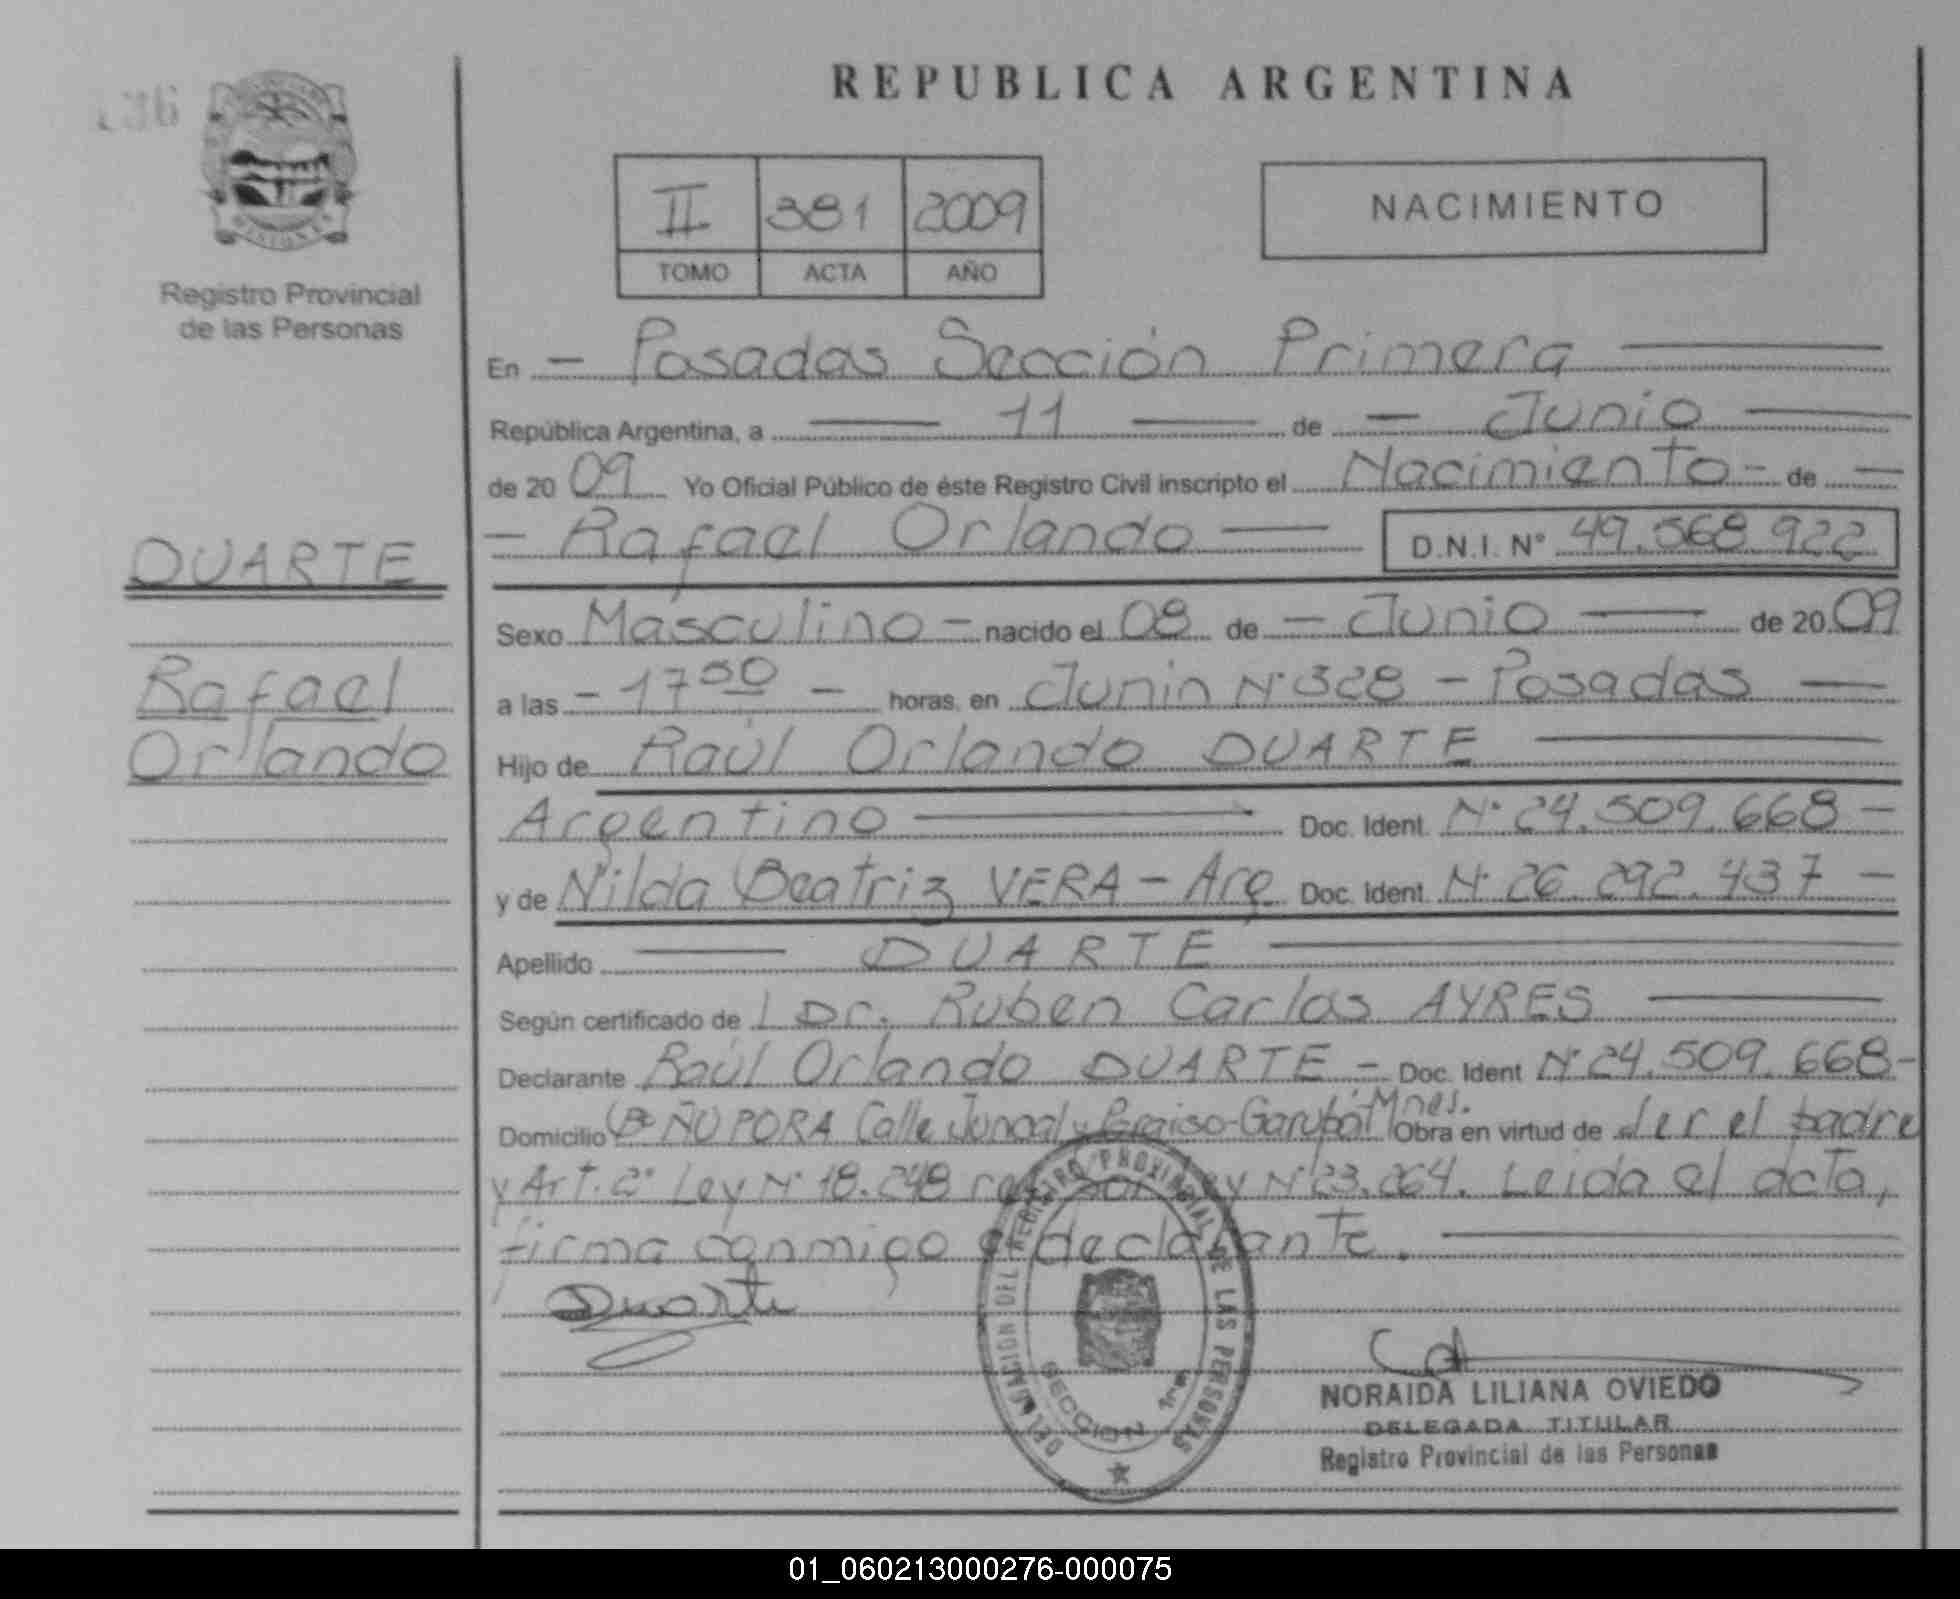 136
REPUBLICA ARGENTINA
II 381 2009
TOMO ACTA AÑO
NACIMIENTO
Registro Provincial
de las Personas
DUARTE
Rafael
Orlando
En - Posadas Sección Primera
República Argentina, a 11 de - Junio
de 2009 Yo Oficial Público de éste Registro Civil inscripto el Nacimiento - de -
- Rafael Orlando - D.N.I. N° 49.568.922
Sexo Masculino - nacido el 08 de - Junio - de 2009
a las - 17 30 - horas, en Junin N° 328 - Posadas -
Hijo de Raúl Orlando DUARTE
Argentino Doc. Ident. N° 24.509.668 -
y de Nilda Beatriz VERA - Arg Doc. Ident. N° 26.292.437 -
Apellido DUARTE
Según certificado de Dr. Ruben Carlos AYRES
Declarante Raúl Orlando DUARTE - Doc. Ident N° 24.509.668 -
Domicilio B° ÑU PORA Calle Juncal y Paraiso - Garupá Mnes. Obra en virtud de ser el padre
y Art. 2° Ley N° 18.248 por Ley N° 23.264. Leida el acta,
firma conmigo el declarante.
Duarte
DELEGACION DEL REGISTRO PROVINCIAL DE LAS PERSONAS
SECCION 1ra
NORAIDA LILIANA OVIEDO
DELEGADA TITULAR
Registro Provincial de las Personas
01_060213000276-000075